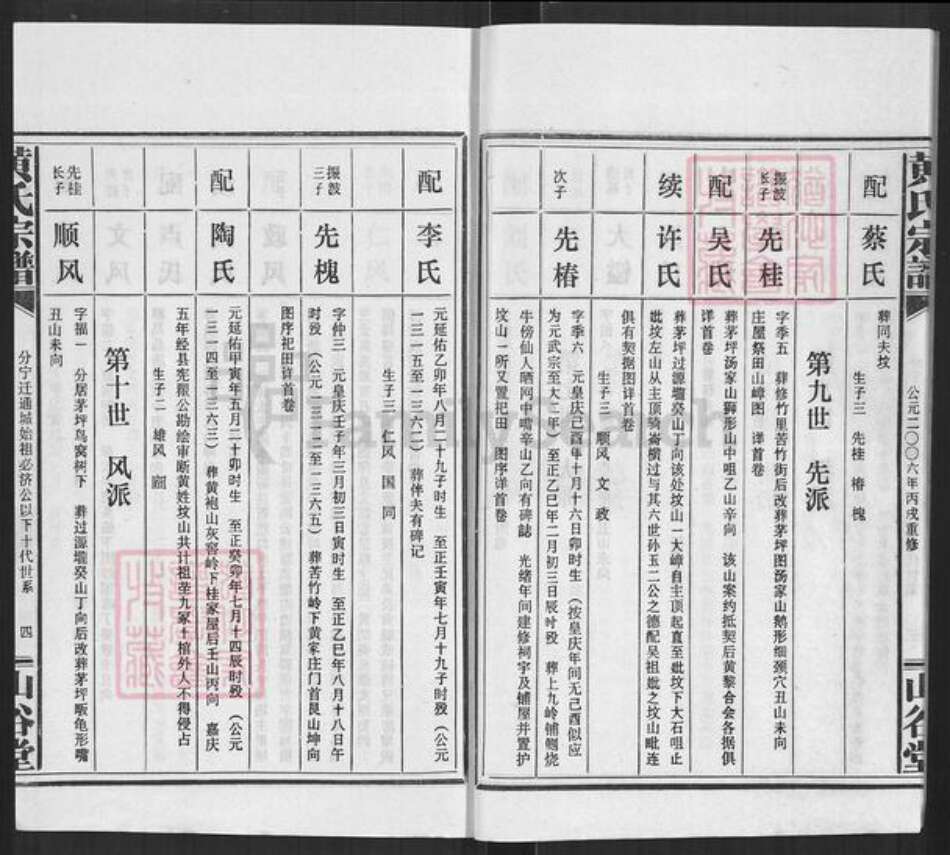 黄氏宗谱
公元二〇〇六年丙戌重修
山谷堂
配 蔡氏
葬同夫坟
生子三 先桂 椿 槐
第九世 先派
振波长子 先桂
字季五 葬修竹里苦竹街后改葬茅坪图汤家山鹅形细颈穴丑山未向
庄屋祭田山嶂图 详首卷
配 吴氏
葬茅坪汤家山狮形山中咀乙山辛向 该山案约抵契后黄黎合会各据俱
详首卷
续 许氏
葬茅坪过源塅癸山丁向该处坟山一大嶂自主顶起直至妣坟下大石咀止
妣坟左山从主顶骑崙横过与其六世孙玉二公之德配吴祖妣之坟山毗连
俱有契据图详首卷
生子三 顺风 文 政
次子 先椿
字季六 元皇庆己酉年十月十六日卯时生 (按皇庆年间无己酉似应
为元武宗至大二年) 至正乙巳年二月初三日辰时殁 葬上九岭铺侧烧
牛塝仙人晒网中嘴辛山乙向有碑誌 光绪年间建修祠宇及铺屋并置护
坟山一所又置祀田 图序详首卷
配 李氏
元延佑乙卯年八月二十九子时生 至正壬寅年七月十九子时殁 (公元
一三一五至一三六二) 葬伴夫有碑记
生子三 仁风 国 同
振波三子 先槐
字仲三 元皇庆壬子年三月初三日寅时生 至正乙巳年八月十八日午
时殁 (公元一三一二至一三六五) 葬苦竹岭下黄家庄门首艮山坤向
图序祀田详首卷
配 陶氏
元延佑甲寅年五月二十卯时生 至正癸卯年七月十四辰时殁 (公元
一三一四至一三六三) 葬黄袍山灰窖岭下桂家屋后壬山丙向 嘉庆
五年经县宪瞿公勘绘审断黄姓坟山共计祖茔九冢十棺外人不得侵占
生子二 雄风
第十世 风派
先桂长子 顺风
字福一 分居茅坪鸟窝树下 葬过源塅癸山丁向后改葬茅坪畈龟形嘴
丑山未向
黄氏宗谱
分宁迁通城始祖必挤公以下十代世系
四
山谷堂